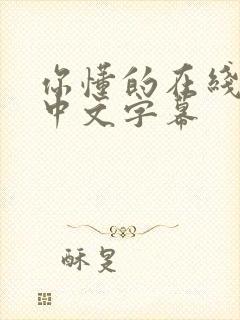 你懂的在线
中文字幕
酥是